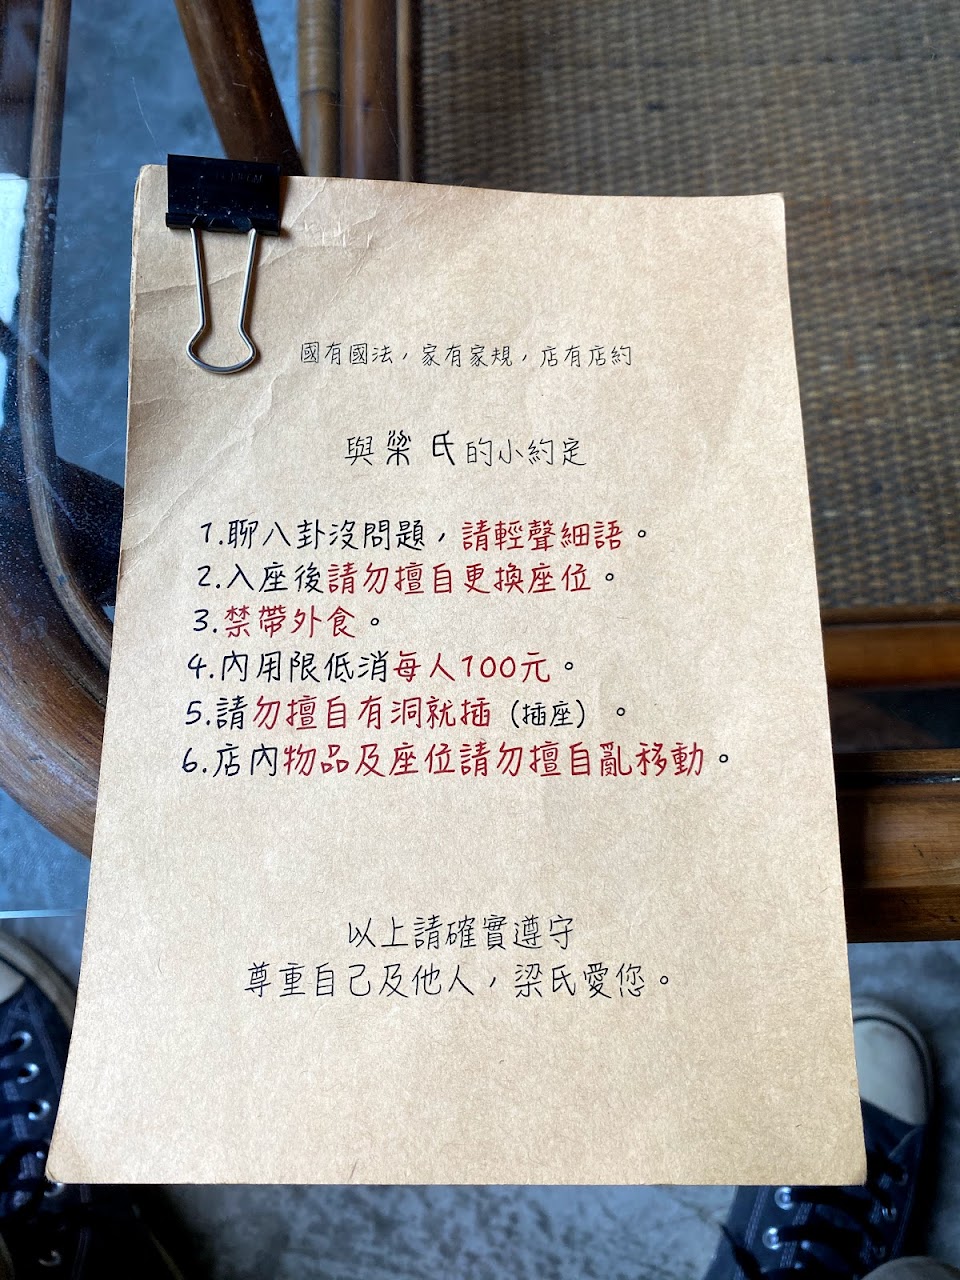 國有國法，家有家規，店有店約
與梁氏的小約定
1.聊八卦沒問題，請輕聲細語。
2.入座後請勿擅自更換座位。
3.禁帶外食。
4.內用限低消每人100元。
5.請勿擅自有洞就插（插座）。
6.店內物品及座位請勿擅自亂移動。
以上請確實遵守
尊重自己及他人，梁氏愛您。